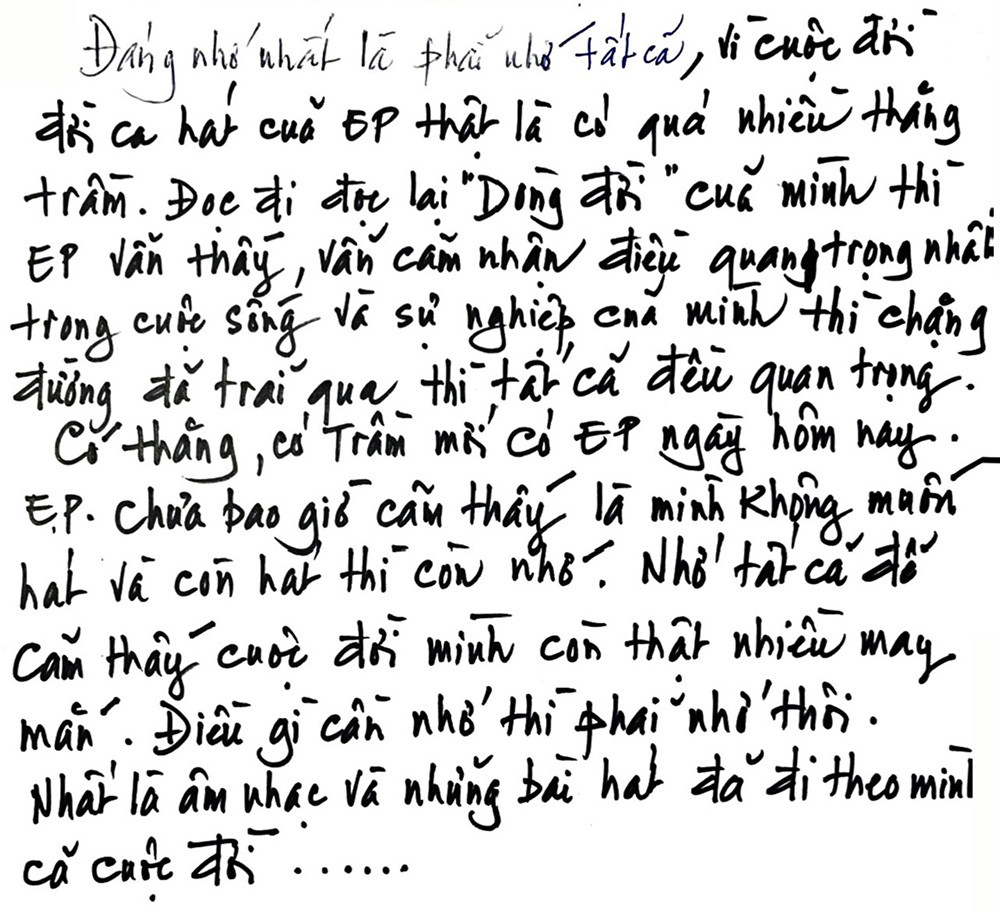 Đáng nhớ nhất là phải nhớ tất cả, vì cuộc đời
đời ca hát của EP thật là có quá nhiều thăng
trầm. Đọc đi đọc lại "Dòng đời" của mình thì
EP vẫn thấy, vẫn cảm nhận điều quan trọng nhất
trong cuộc sống và sự nghiệp của mình thì chặng
đường đã trải qua thì tất cả đều quan trọng.
Có thăng, có Trầm mới có EP ngày hôm nay.
E.P. chưa bao giờ cảm thấy là mình không muốn
hát và còn hát thì còn nhớ. Nhớ tất cả để
cảm thấy cuộc đời mình còn thật nhiều may
mắn. Điều gì cần nhớ thì phải nhớ thôi.
Nhất là âm nhạc và những bài hát đã đi theo mình
cả cuộc đời ......